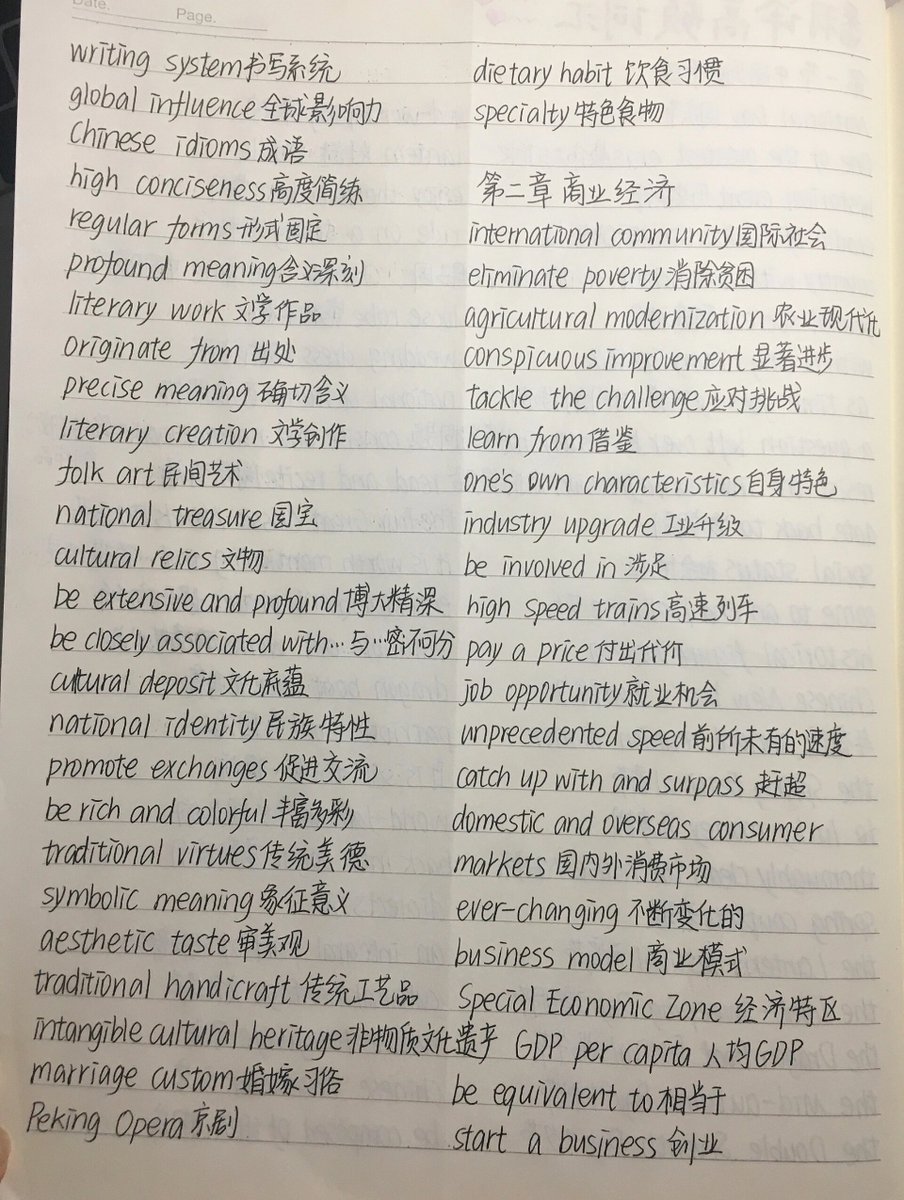 Date.
Page.
writing system书写系统
global influence 全球影响力
Chinese idioms 成语
high conciseness 高度简练
regular forms 形式固定
profound meaning含义深刻
literary work 文学作品
originate from 出处
precise meaning 确切含义
literary creation 文学创作
folk art 民间艺术
national treasure 国宝
cultural relics 文物
be extensive and profound 博大精深
be closely associated with…与…密不可分
cultural deposit 文化底蕴
national identity 民族特性
promote exchanges 促进交流
be rich and colorful 丰富多彩
traditional virtues 传统美德
symbolic meaning 象征意义
aesthetic taste 审美观
traditional handicraft 传统工艺品
intangible cultural heritage 非物质文化遗产
marriage custom 婚嫁习俗
Peking Opera 京剧
dietary habit 饮食习惯
specialty 特色食物
第二章 商业经济
international community 国际社会
eliminate poverty 消除贫困
agricultural modernization 农业现代化
conspicuous improvement 显著进步
tackle the challenge 应对挑战
learn from 借鉴
one's own characteristics 自身特色
industry upgrade 工业升级
be involved in 涉足
high speed trains 高速列车
pay a price 付出代价
job opportunity 就业机会
unprecedented speed 前所未有的速度
catch up with and surpass 赶超
domestic and overseas consumer
markets 国内外消费市场
ever-changing 不断变化的
business model 商业模式
Special Economic Zone 经济特区
GDP per capita 人均GDP
be equivalent to 相当于
start a business 创业